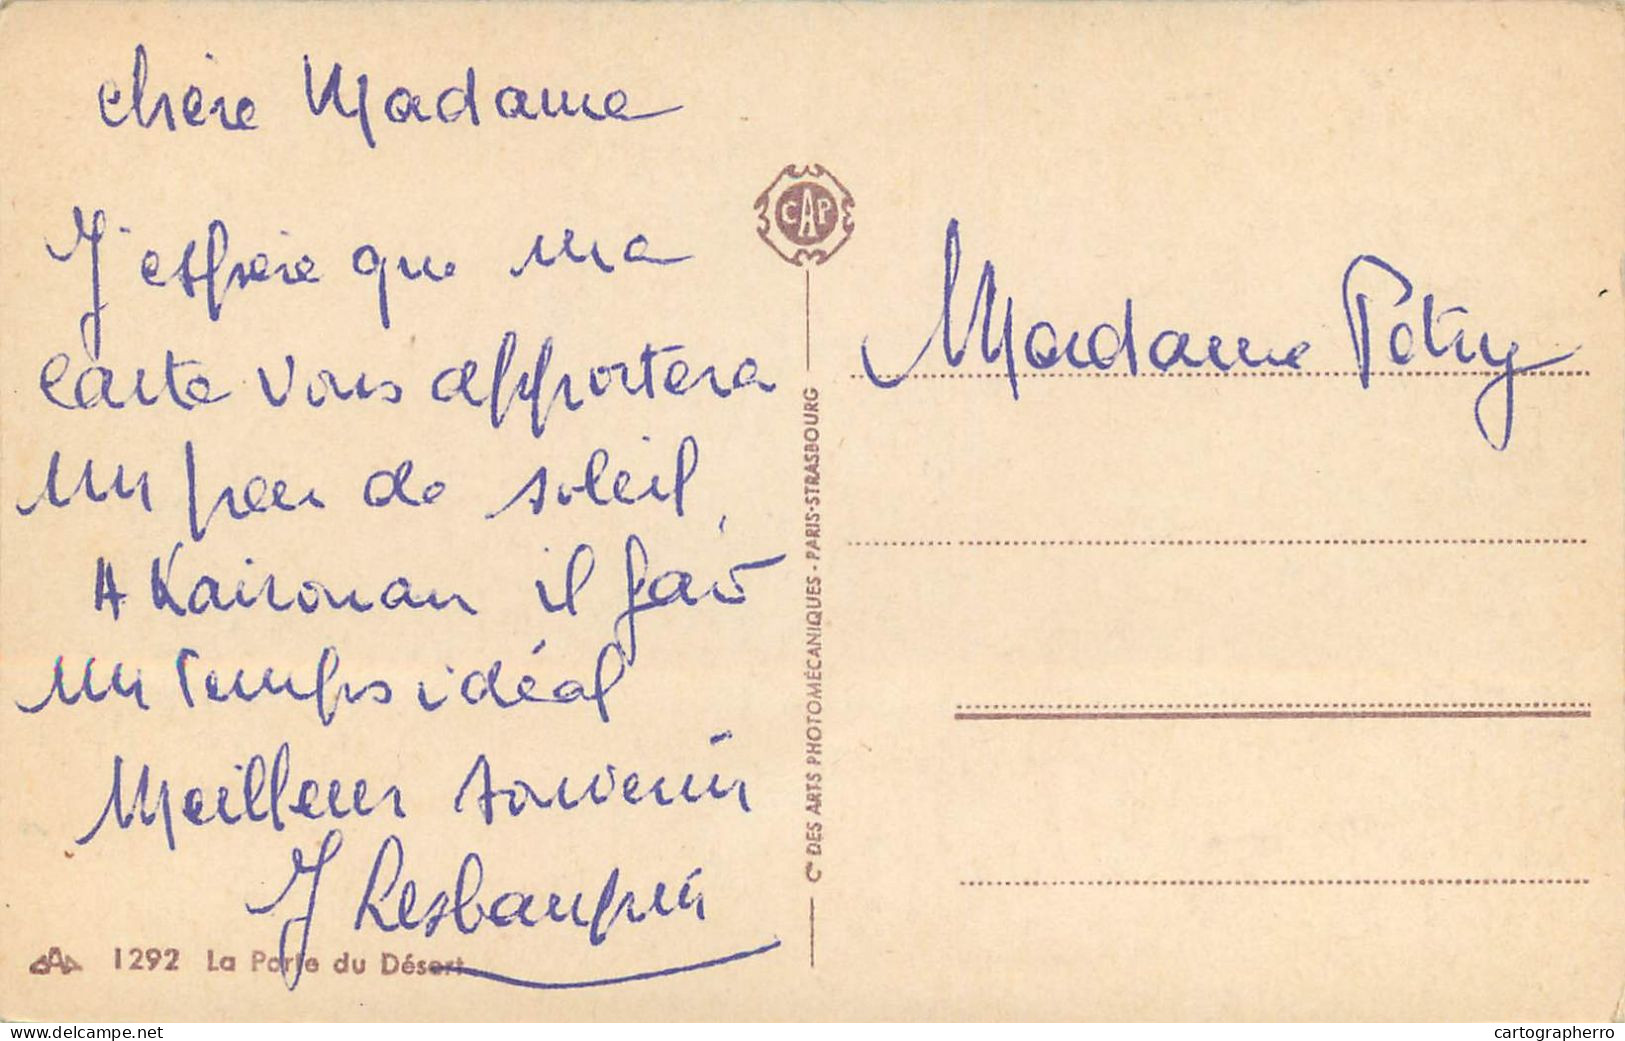 chère Madame
J'espère que ma
carte vous apportera
un peu de soleil.
A Kairouan il fait
un temps idéal
Meilleur souvenir
J
1292 La Porte du Désert
CAP
Cie DES ARTS PHOTOMÉCANIQUES - PARIS-STRASBOURG
Madame Petry
www.delcampe.net
cartographerro